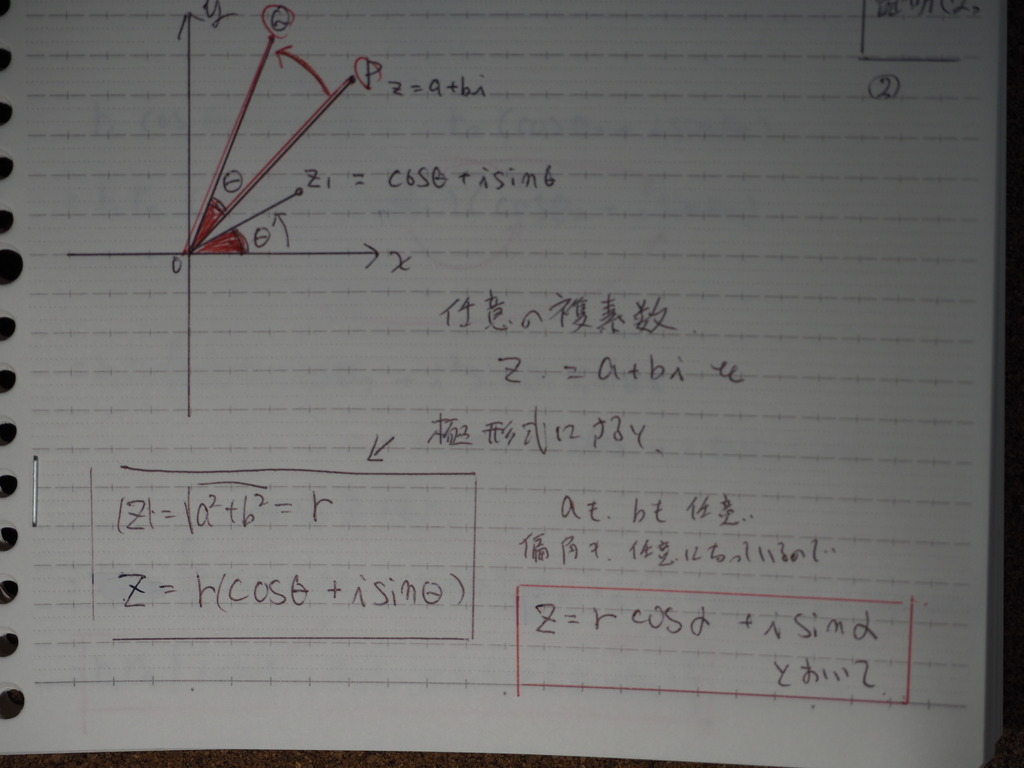 y
Q
P
z=a+bi
(2)
θ
z₁ = cosθ+isinθ
θ
0
x
任意の複素数
z = a+bi を
極形式にすると、
|z|=√a²+b² = r
z = r(cosθ + isinθ)
aも、bも 任意..
偏角も、任意になっているので..
z = r cosα + i sinα
とおいて